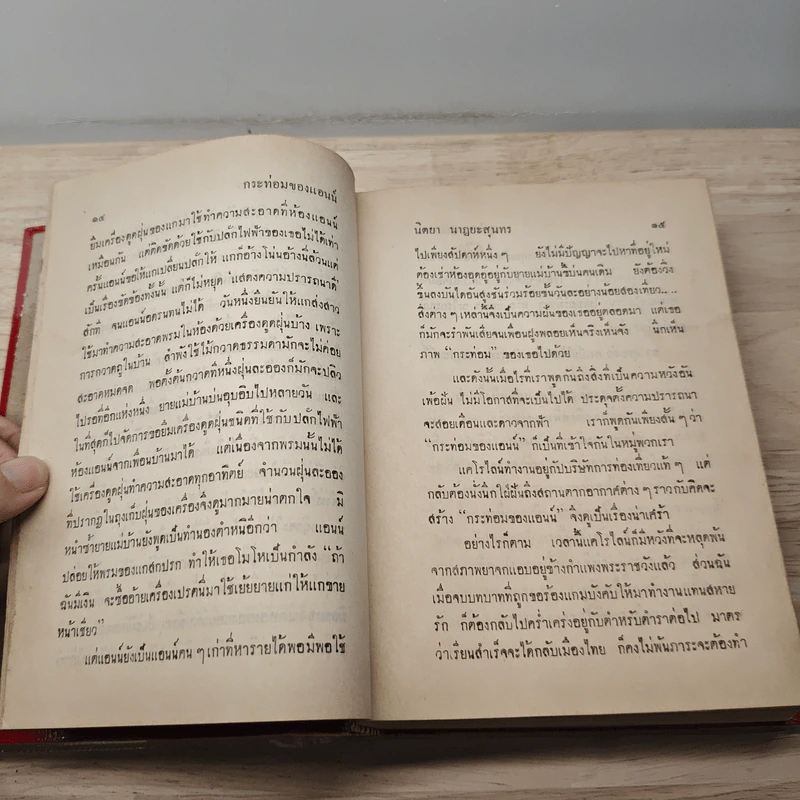 กระท่อมของแอนน์
๑๔
ยืมเครื่องดูดฝุ่นของแกมาใช้ทำความสะอาดที่ห้องแอนน์
เหมือนกัน แต่ติดขัดด้วยใช้กับปลั๊กไฟฟ้าของเธอไม่ได้เท่า
ครั้นแอนน์ขอให้แกเปลี่ยนปลั๊กให้ แกก็อ้างโน่นอ้างนี่ล้วนแต่
เป็นเรื่องขัดข้องทั้งนั้น แต่ก็ไม่หยุด “แสดงความปรารถนาดี”
สักที จนแอนน์อดรนทนไม่ได้ วันหนึ่งยืนยันให้แกส่งสาว
ใช้มาทำความสะอาดพรมในห้องด้วยเครื่องดูดฝุ่นบ้าง เพราะ
การกวาดถูในบ้าน ลำพังใช้ไม้กวาดธรรมดามักจะไม่ค่อย
สะอาดหมดจด พอตั้งต้นกวาดที่หนึ่งฝุ่นละอองก็มักจะปลิว
ไปรอที่อีกแห่งหนึ่ง ยายแม่บ้านบ่นอุบอิบไปหลายวัน และ
ในที่สุดก็ไปจัดการขอยืมเครื่องดูดฝุ่นชนิดที่ใช้กับปลั๊กไฟฟ้า
ห้องแอนน์จากเพื่อนบ้านมาได้ แต่เนื่องจากพรมนั้นไม่ได้
ใช้เครื่องดูดฝุ่นทำความสะอาดทุกอาทิตย์ จำนวนฝุ่นละออง
ที่ปรากฏในถุงเก็บฝุ่นของเครื่องจึงดูมากมายน่าตกใจ มิ
หนำซ้ำยายแม่บ้านยังพูดเป็นทำนองตำหนิอีกว่า แอนน์
ปล่อยให้พรมของแกสกปรก ทำให้เธอโมโหเป็นกำลัง “ถ้า
ฉันมีเงิน จะซื้ออ้ายเครื่องเปรตนี่มาใช้เย้ยยายแก่ให้แกขาย
หน้าเชียว”
แต่แอนน์ยังเป็นแอนน์คน ๆ เก่าที่หารายได้พอมีพอใช้
นิตยา นาฏยะสุนทร
๑๕
ไปเพียงสัปดาห์หนึ่ง ๆ ยังไม่มีปัญญาจะไปหาที่อยู่ใหม่
ต้องเช่าห้องอุดอู้อยู่กับยายแม่บ้านขี้บ่นคนเดิม ยังต้องวิ่ง
ขึ้นลงบันไดอันสูงชันร่วมร้อยขั้นวันละอย่างน้อยสองเที่ยว....
สิ่งต่าง ๆ เหล่านี้จึงเป็นความฝันของเธออยู่ตลอดมา แต่เธอ
ก็มักจะรำพันเสียจนเพื่อนฝูงพลอยเห็นจริงเห็นจัง นึกเห็น
ภาพ “กระท่อม” ของเธอไปด้วย
และดังนั้นเมื่อไรที่เราพูดกันถึงสิ่งที่เป็นความหวังอัน
เพ้อฝัน ไม่มีโอกาสที่จะเป็นไปได้ ประดุจดั่งความปรารถนา
จะสอยเดือนและดาวจากฟ้า เราก็พูดกันเพียงสั้น ๆ ว่า
“กระท่อมของแอนน์” ก็เป็นที่เข้าใจกันในหมู่พวกเรา
แคโรไลน์ทำงานอยู่กับบริษัทการท่องเที่ยวแท้ ๆ แต่
กลับต้องนั่งนึกใฝ่ฝันถึงสถานตากอากาศต่าง ๆ ราวกับคิดจะ
สร้าง “กระท่อมของแอนน์” จึงดูเป็นเรื่องน่าเศร้า
อย่างไรก็ตาม เวลานี้แคโรไลน์ก็มีหวังที่จะหลุดพ้น
จากสภาพยาจกแอบอยู่ข้างกำแพงพระราชวังแล้ว ส่วนฉัน
เมื่อจบบทบาทที่ถูกขอร้องแกมบังคับให้มาทำงานแทนสหาย
รัก ก็ต้องกลับไปคร่ำเคร่งอยู่กับตำหรับตำราต่อไป มาตร
ว่าเรียนสำเร็จจะได้กลับเมืองไทย ก็คงไม่พ้นภาระจะต้องทำ